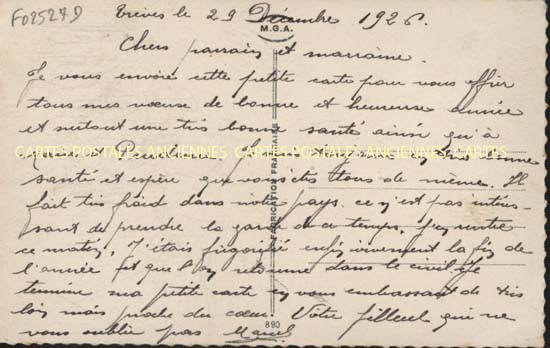 F02527D
Trèves le 29 Décembre 1926.
M.G.A.
Chers parrain et marraine.
Je vous envoie cette petite carte pour vous offrir
tous mes vœux de bonne et heureuse année
et surtout une très bonne santé ainsi qu'à
CARTES POSTALES ANCIENNES CARTES POSTALES ANCIENNES CARTES
santé et espère que vous êtes tous de même. Il
fait très froid dans notre pays. ce n'est pas intéres-
sant de prendre la garde de ce temps. j'en rentre
ce matin, j'étais frigorifié enfin vivement la fin de
l'année fit que l'on retourne dans le civil. Je
termine ma petite carte en vous embrassant de très
loin mais proche du cœur. Votre filleul qui ne
vous oublie pas Marcel
FABRICATION FRANÇAISE
890